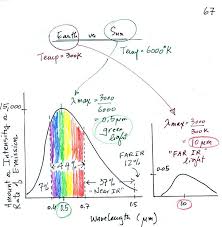 67
Earth vs Sun
Temp = 300K
Temp = 6000°K
λmax = 3000
6000
= 0.5μm
green
light
λmax = 3000
300
= 10 μm
"FAR IR"
light
Amount or Intensity or
Rate of Emission
7%
44%
37%
"Near IR"
FAR IR
12%
0.4
0.5
0.7
1.5
Wavelength (μm)
0.05
10